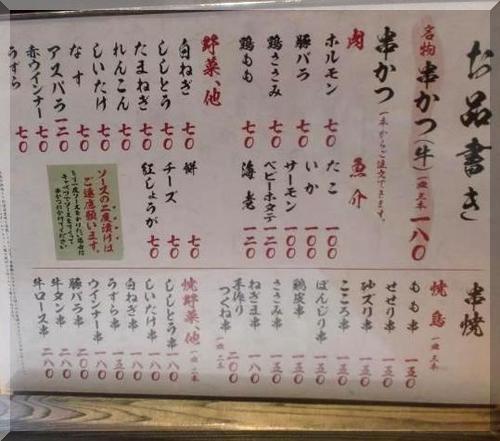 お品書き
名物 串かつ(牛) 一皿三本 一八〇
串かつ 一本からご注文できます。
肉
ホルモン 七〇
豚バラ 七〇
鶏ささみ 七〇
鶏もも 七〇
魚介
たこ 一〇〇
いか 一〇〇
サーモン 一〇〇
ベビーホタテ 一二〇
海老 一二〇
野菜、他
白ねぎ 七〇
ししとう 七〇
たまねぎ 七〇
れんこん 七〇
しいたけ 七〇
なす 七〇
アスパラ 一二〇
赤ウインナー 七〇
うずら 七〇
餅 七〇
チーズ 七〇
紅しょうが 七〇
ソースの二度漬けは
ご遠慮願います。
串焼
焼鳥 一皿 二本
もも串 一五〇
せせり串 一八〇
砂ズリ串 一五〇
こころ串 一五〇
ぼんじり串 一五〇
鶏皮串 一五〇
ささみ串 一五〇
ねぎま串 一八〇
手作り
つくね串 二〇〇
焼野菜、他 一皿 二本
ししとう串 一八〇
しいたけ串 一八〇
白ねぎ串 一八〇
うずら串 一五〇
ウインナー串 一八〇
豚バラ串 二〇〇
牛タン串 二八〇
牛ロース串 二八〇